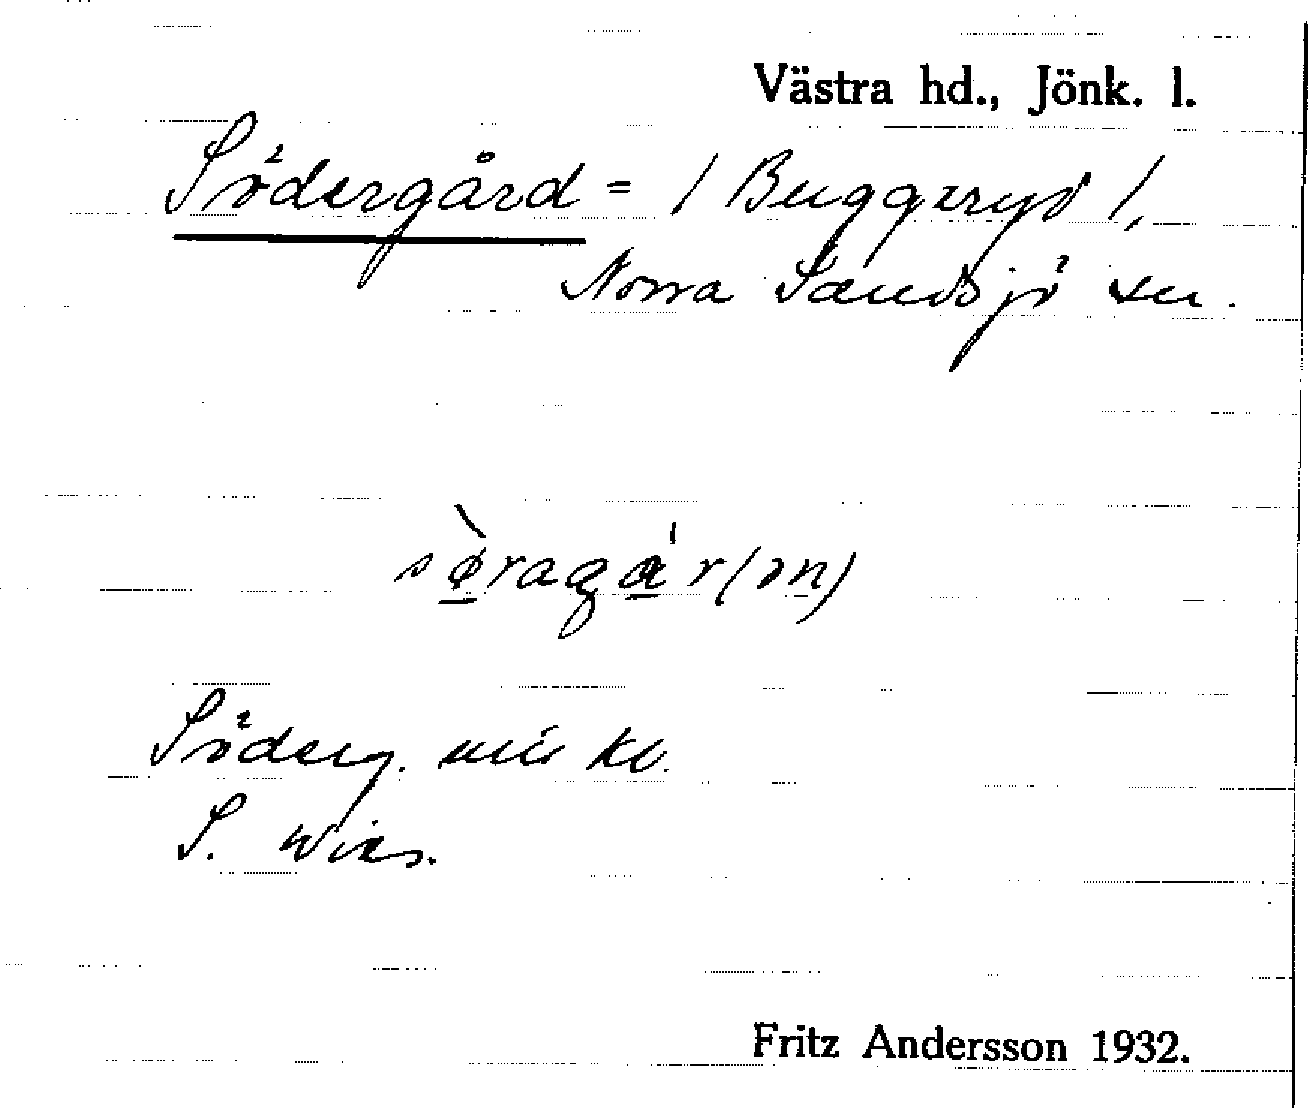 Västra hd., Jönk. l.
Södergård = / Buggeryd /,
Norra Sandsjö sn.
sø̀ragár(ən)
Söderg.
S.
Fritz Andersson 1932.